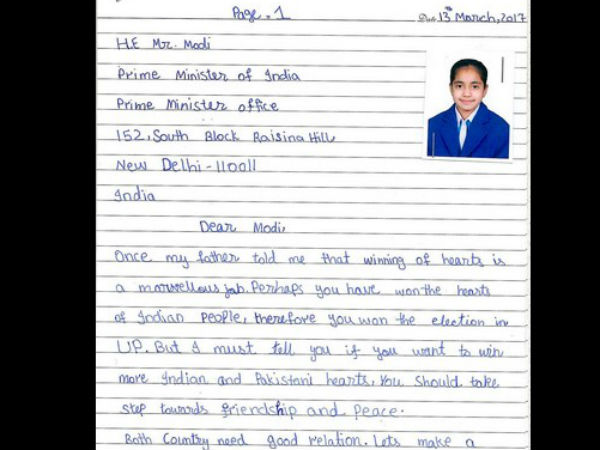 Page. 1
Date 13th March, 2017
H.E Mr. Modi
Prime Minister of India
Prime Minister office
152, South Block Raisina Hill
New Delhi - 110011
India
Dear Modi,
Once my father told me that winning of hearts is
a marvellous job. Perhaps you have won the hearts
of Indian People, therefore you won the election in
UP. But I must tell you if you want to win
more Indian and Pakistani hearts, You should take
step towards friendship and Peace.
Both Country need good relation. Lets make a